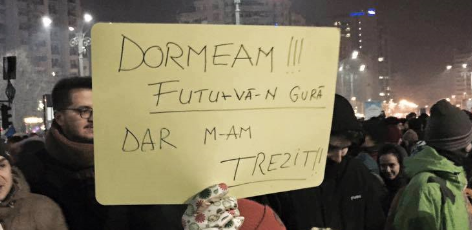 DORMEAM!!!
FUTU-VĂ-N GURĂ
DAR M-AM
TREZIT!!